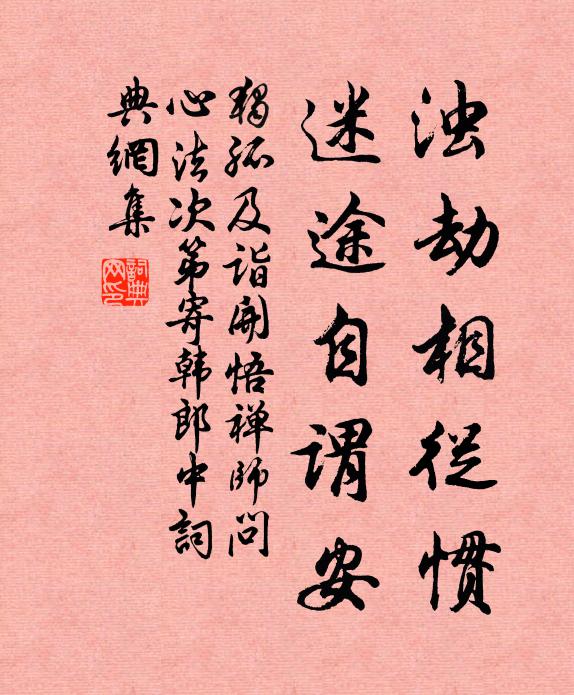 浊劫相从惯
迷途自谓安
独孤及诣开悟禅师问
心法次第寄韩郎中词
典网集
词典网印